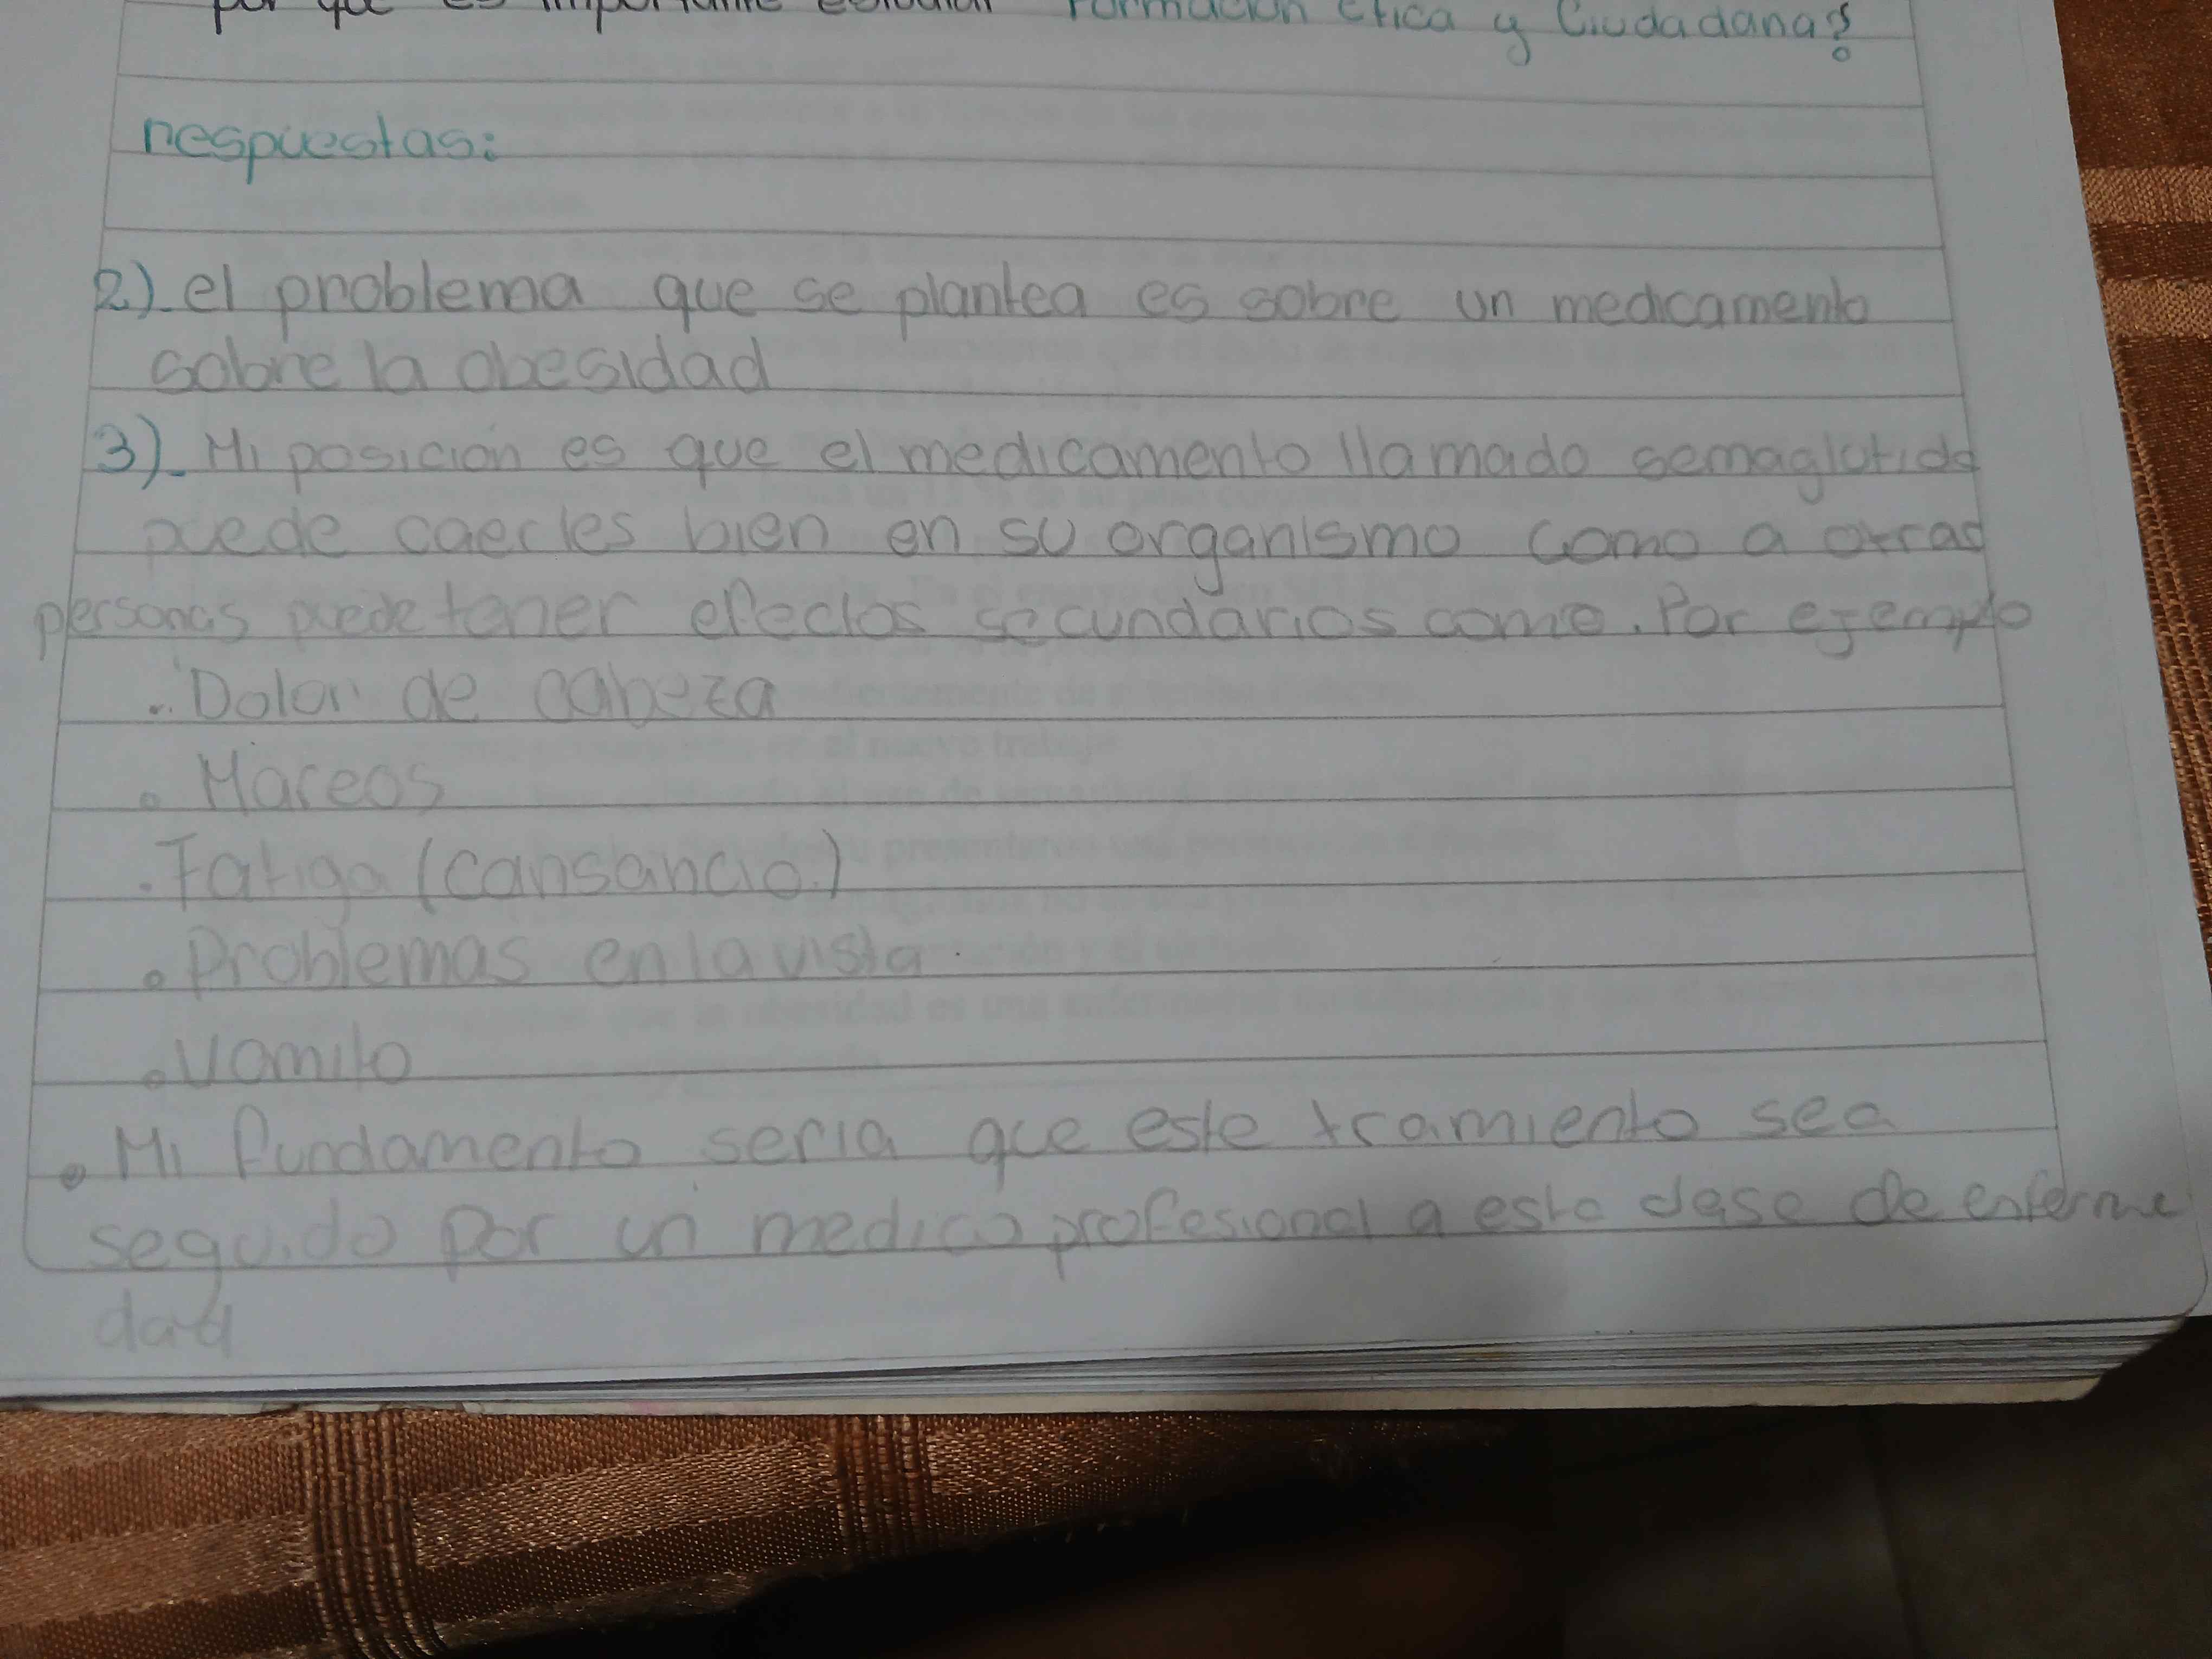 por que es importante estudiar Formación Etica y Ciudadana?
respuestas:
2)_ el problema que se plantea es sobre un medicamento
sobre la obesidad
3)_ Mi posición es que el medicamento llamado semaglutida
puede caerles bien en su organismo como a otras
personas puede tener efectos secundarios como. Por ejemplo
. Dolor de cabeza
. Mareos
. Fatiga (cansancio.)
. Problemas en la vista
. Vomito
. Mi fundamento seria que este tramiento sea
seguido por un medico profesional a esta clase de enferme
dad